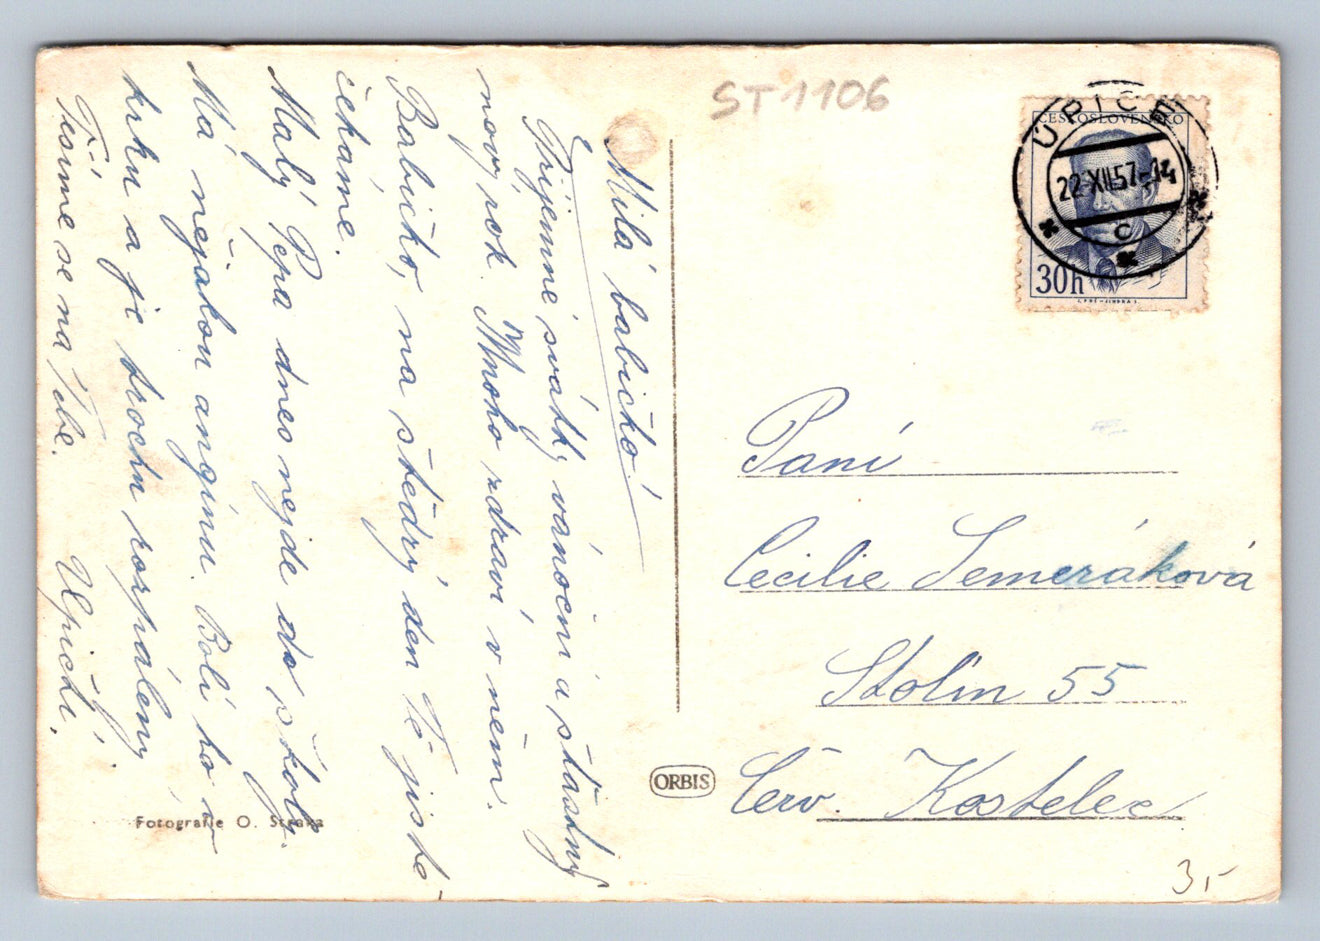 Milá babičko!
Příjemné svátky vánoční a šťastný
nový rok. Mnoho zdraví v něm.
Babičko, na štědrý den Tě jistě
čekáme.
Malý Pepa dnes nejde do školy.
Má nějakou angínu. Bolí ho v
krku a je trochu rozpálený.
Těšíme se na Tebe. Úpičtí.
Fotografie O. Straka
ORBIS
ST1106
ÚPICE
ČESKOSLOVENSKO
22.XII.57-14
C
30h
Paní
Cecilie Semeráková
Stolín 55
Červ. Kostelec
3,-